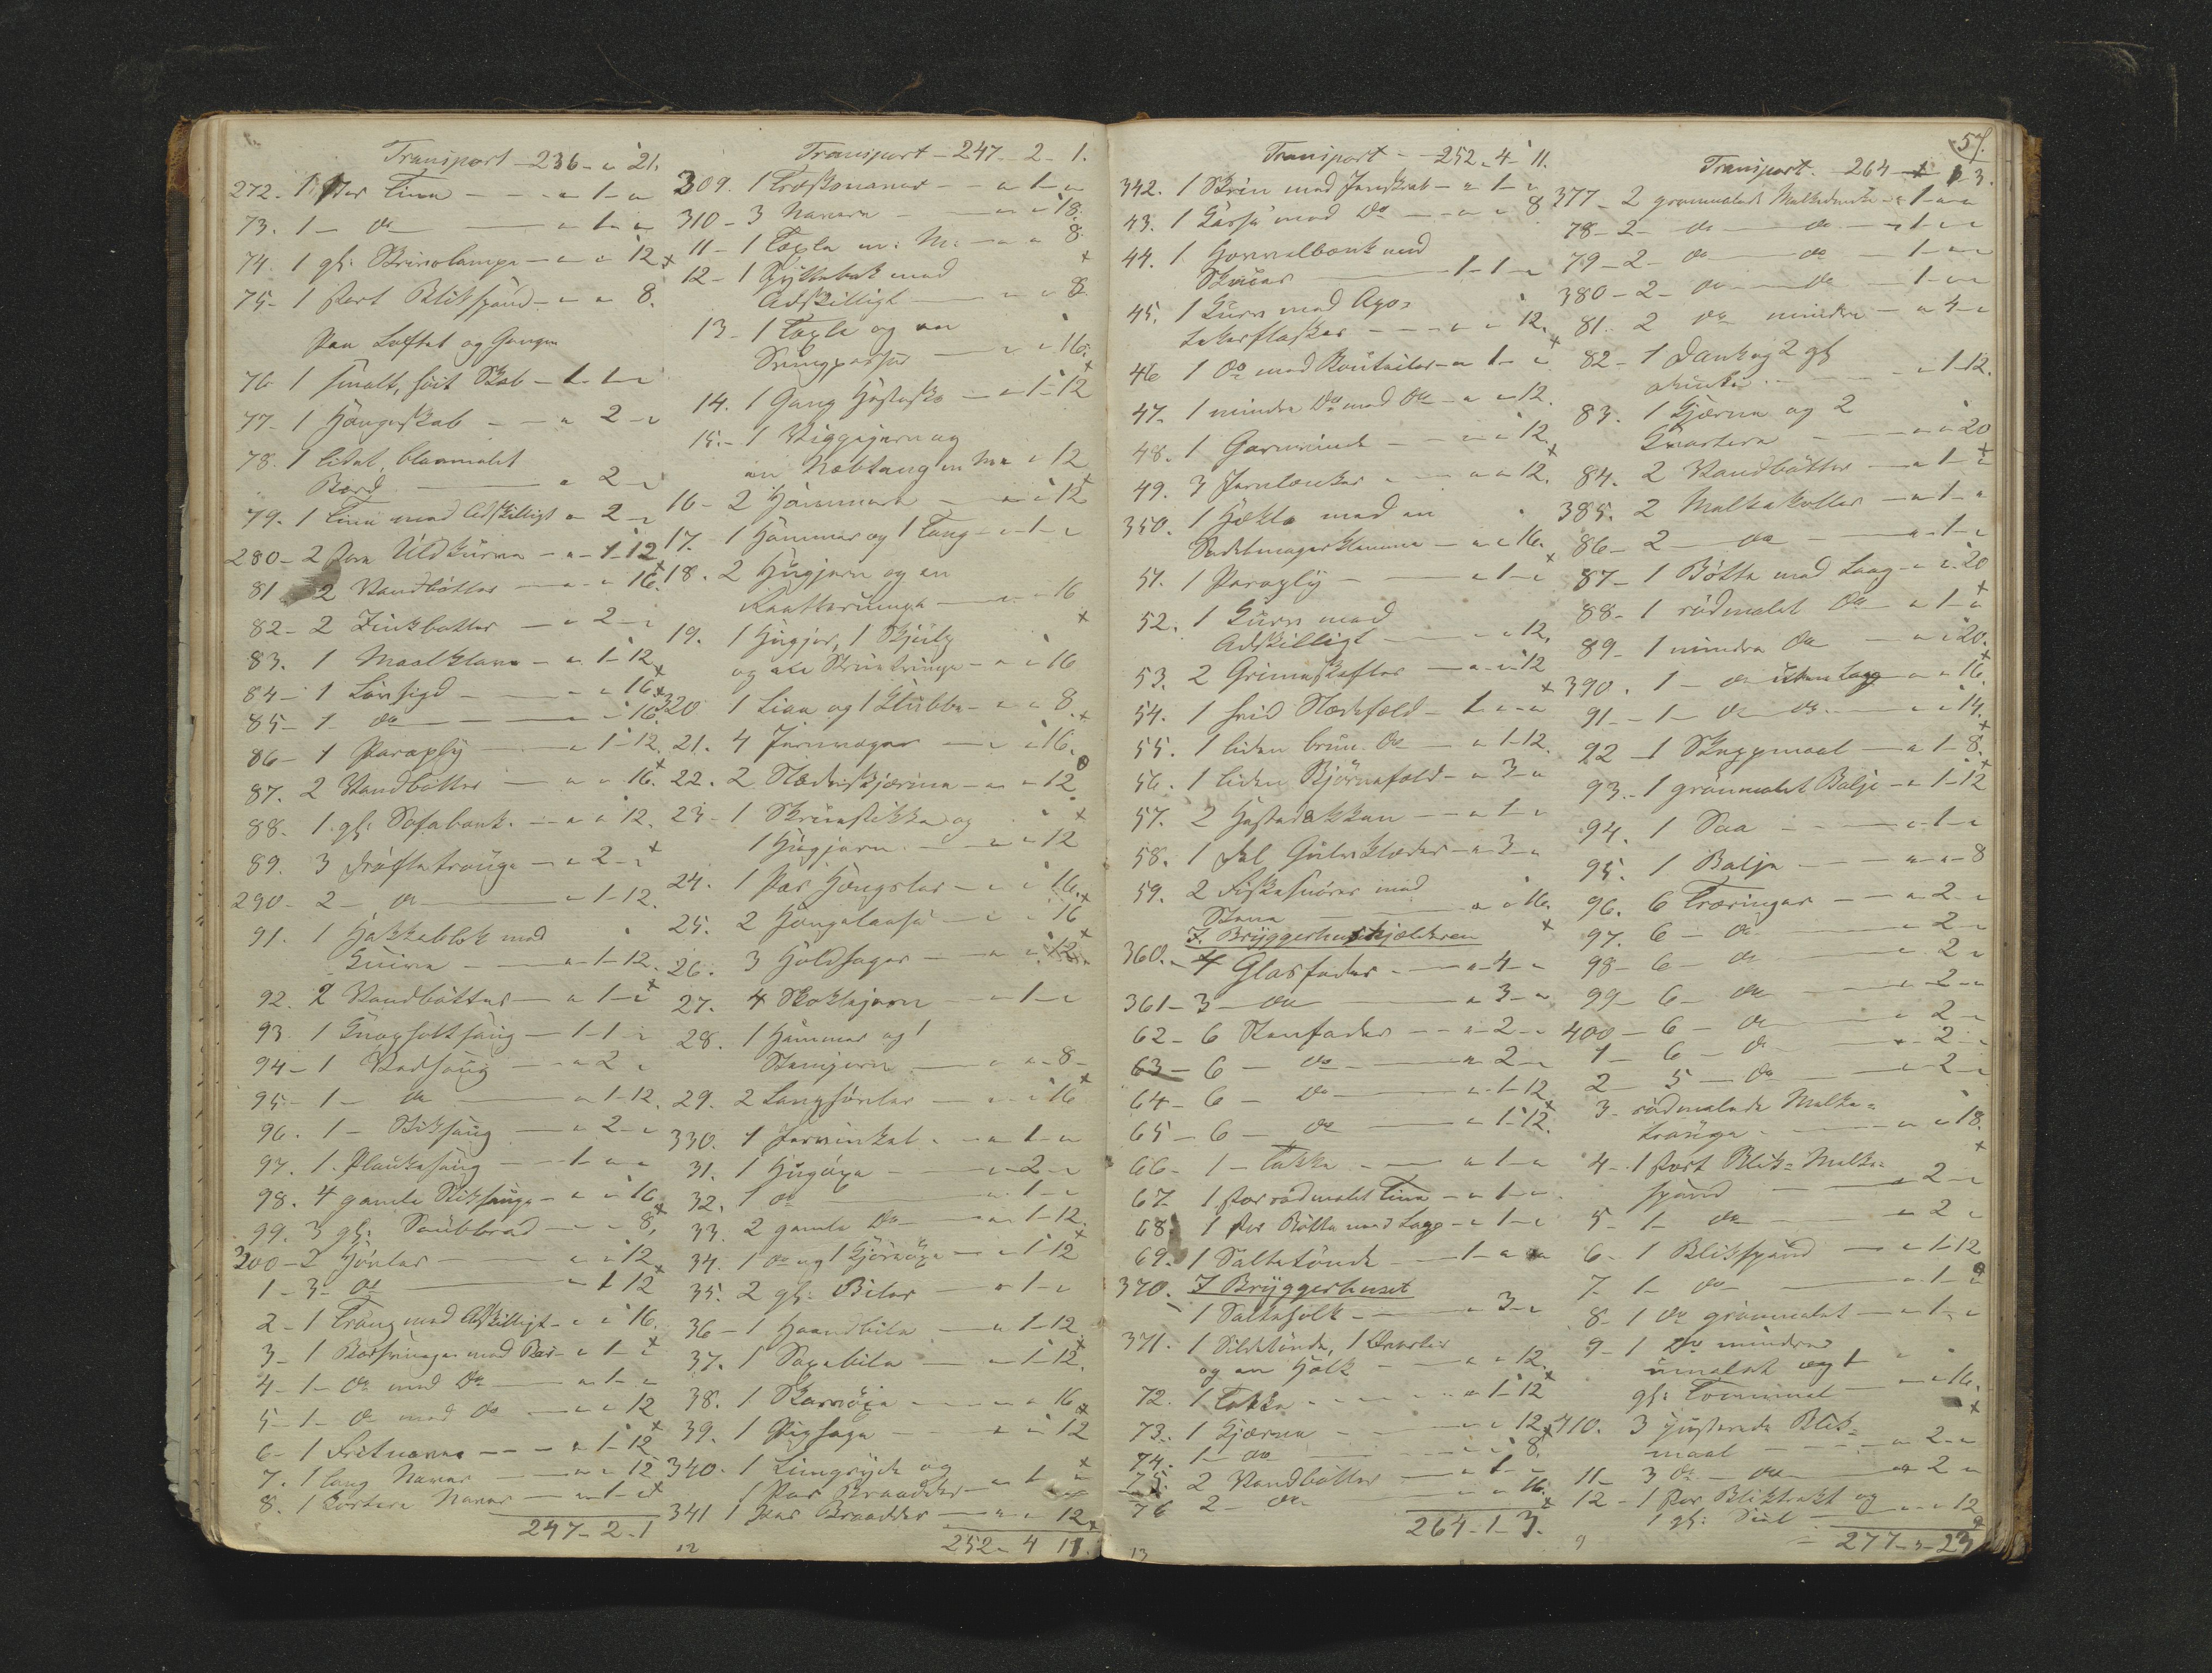 Transport - 236 - " 21.
272. 1 stor Tine - " 1 - "
73. 1 - do - " 1 - "
74. 1 gl: Skrivelampe - " " 12
75 - 1 stort Blikspand - " " 8.
Paa Loftet og Gangen
76 1 smalt, hvit Skab - 1 - 1 - "
77 - 1 Hængeskab - " 2 - "
78. 1 lidet, blaamalet
Bord - " 2 - "
79. 1 Tine med Adskilligt - " 2 - "
280 - 2 store Uldkurve - " 1 - 12
81 2 Vandbøtter - " " 16.
82 - 2 Zinkbøtter - " 2 - "
83. 1 - " 1 - 12
84 - 1 - " " 16
85 - 1 do - " " 16.
86 - 1 Paraply - " 1 - 12.
87. 2 Vandbøtter - " " 16.
88. 1 gl: Sofabænk - " " 12.
89. 3 Drøftetrauge - " 2 - "
290 - 2 - do - " 1 - 12.
91. 1 Hakkeblok med
Knive - " 1 - 12.
92. 2 Vandbøtter - " 1 - "
93. 1 - 1 - 1 - "
94 - 1 - " 2 "
95 - 1 - do - " 1 - 12.
96. 1 - Stiksaug - " 2 - "
97. 1 Plankesaug - 1 - " "
98. 4 gamle Stiksauge - " " 16
99. 3 gl: - " " 8.
300 - 2 Høvler - " " 12
1 - 3 - do - " 1 12
2 - 1 Traug med Adskilligt - " " 16.
3 - 1 med Bor - " 1 - "
4 - 1 - do med do - " 1 - "
5 - 1 - do med do - " " 12
6 - 1 - " 1 - 12
7. 1 lang Navar - " " 12
8. 1 kortere Navar - " 1 - "
247 - 2 - 1
Transport - 247 - 2 - 1.
309. 1 Træskonavar - " 1 - "
310 - 3 Navare - " " 18.
11 - 1 m: M: - " " 8
12 - 1 med
Adskilligt - " " 8
13 - 1 og en
- " " 16.
14. 1 Gang Hestesko - " 1 - 12
15. - 1 og
en Nebtang - " 12
16 - 2 Hammere - " " 12
17. 1 Hammer og 1 Tang - " 1 - "
18. 2 Hugjern og en
- " " 16
19. 1
og - " " 16
320 1 og 1 Klubbe - " " 8.
21. 4 - " " 16.
22. 2 Slædeskjerme - " " 12
23 - 1 Skruestikke og
1 Hugjern - " " 12
24. 1 Par Hængsler - " " 16.
25. 2 Hængelaase - " " 16
26. 3 Holdsager - " " 12
27. 4 - " 1 - "
28. 1 Hammer og 1
Stemjern - " " 8 -
29. 2 Langhøvler - " " 16
330. 1 Jernvinkel - " 1 - "
31. 1 Hugøxe - " 2 - "
32. 1 do - " 1 - "
33. 2 gamle Do - " 1 - 12
34. 1 do og 1 - " 1 12
35. 2 gl: Biler - " 1 - "
36 - 1 Haandbile - " 1 - 12
37. 1 - " 1 - 12.
38. 1 - " 16
39. 1 - " " 12
340. 1 og
1 Par - " 1 - "
341 1 Par - " " 12
252 - 4 11.
12
Transport - 252 - 4 - 11.
342. 1 Skrin med Jernskrab - " 1 - "
43. 1 Kasse med Do - " " 8
44. 1 Høvelbænk med
Skruer - 1 - 1 - "
45. 1 Kurv med Apo-
thekerflasker - " " 12.
46 1 Do med Bouteiller - " 1 - "
47. 1 mindre Do med Do - " " 12.
48. 1 Garnvinde - " " 12.
49. 3 Jernlænker - " " 12.
350. 1 Hekle med en
Sadelmagerklemme - " " 16.
51. 1 Paraply - " 1 - "
52. 1 Kurv med
Adskilligt - " " 12.
53. 2 Grimeskafter - " " 12
54. 1 hvid Slædefæld - 1 - " "
55. 1 liden brun Do - " 1 - 12.
56. 1 liden Bjørnefæld - " 3 - "
57. 2 Hestedækken - " 1 - "
58. 1 Del Gulvklæder - " 3 - "
59. 2 Fiskesnører med
Stene - " " 16.
I Bryggerhuskjælderen
360. - 4 Glasfader - " 4 - "
361 - 3 - do - " 3 - "
62 - 6 Stenfader - " 2 - "
63 - 6 - do - " 2 - "
64 - 6 - Do - " 1 - 12.
65 - 6 - do - " 1 - 12.
66 - 1 - Takke - " 1 - "
67 - 1 stor rødmalet Tine - " 1 - "
68. 1 stor Bøtte med Laag - " 1 - "
69. 1 Saltetønde - 1 - " "
370. I Bryggerhuset
1 Salteholk - " 3 - "
371. 1 Sildetønde, 1 Qvarter
og en Holk - " " 12.
72. 1 Takke - " 1 - 12
73. 1 Kjærne - " " 12
74. 1 - do - " " 8.
75. 2 Vandbøtter - " 1 - "
76 2 - do - " " 16.
264 - 1 - 3.
13
57.
Transport - 264 - 1 3.
377 - 2 grønmalede - " 1 - "
78 - 2 - do - do - " 1 - "
79 - 2 - do - do - 1 - "
380 - 2 - do - do - 1 - "
81. 2 do mindre - " 4 - "
82 - 1 Dank og 2 gl
- " 1 - 12.
83. 1 Kjærne og 2
Kvartere - " " 20
84. 2 Vandbøtter - " 1 - "
385. 2 Melkekoller - " 1 - "
86 - 2 - do - " 1 - "
87 - 1 Bøtte med Laag - " " 20
88 - 1 rødmalet Do - " 1 - "
89 - 1 mindre do - " " 20.
390. 1 - do uden Laag - " " 16.
91 - 1 - do do - " " 14.
92 - 1 Skjeppmaal - " 1 - 8.
93. - 1 grønmalet Balje - " 1 - 12
94. 1 Saa - " 1 - "
95. 1 Balje - " " 8
96. 6 Træringer - " 2 - "
97. 6 - do - 2 - "
98 - 6 - do - " 2 "
99 - 6 - do - " 2 - "
400 - 6 - do - " 2 -
1 - 6 - do - " 2 -
2 - 5 - do - " 2 - "
3 - rødmalede Melke-
trauge - " " 18.
4 - 1 stort Blik-Melke-
spand - " 2 - "
5 - 1 - do - " 2 "
6 - 1 Blikspand - " 1 - 12
7 - 1 - do - " 1 - "
8 - 1 do grønmalet - " 1 - "
9 - 1 Do mindre
umalet og 1
gl: - " " 16.
410. 3 justerede Blik-
maal - " 2 - "
11 - 3 do - do - " 2 "
12 - 1 stor Bliktrakt og
1 gl: - " " 12
277 - " - 23